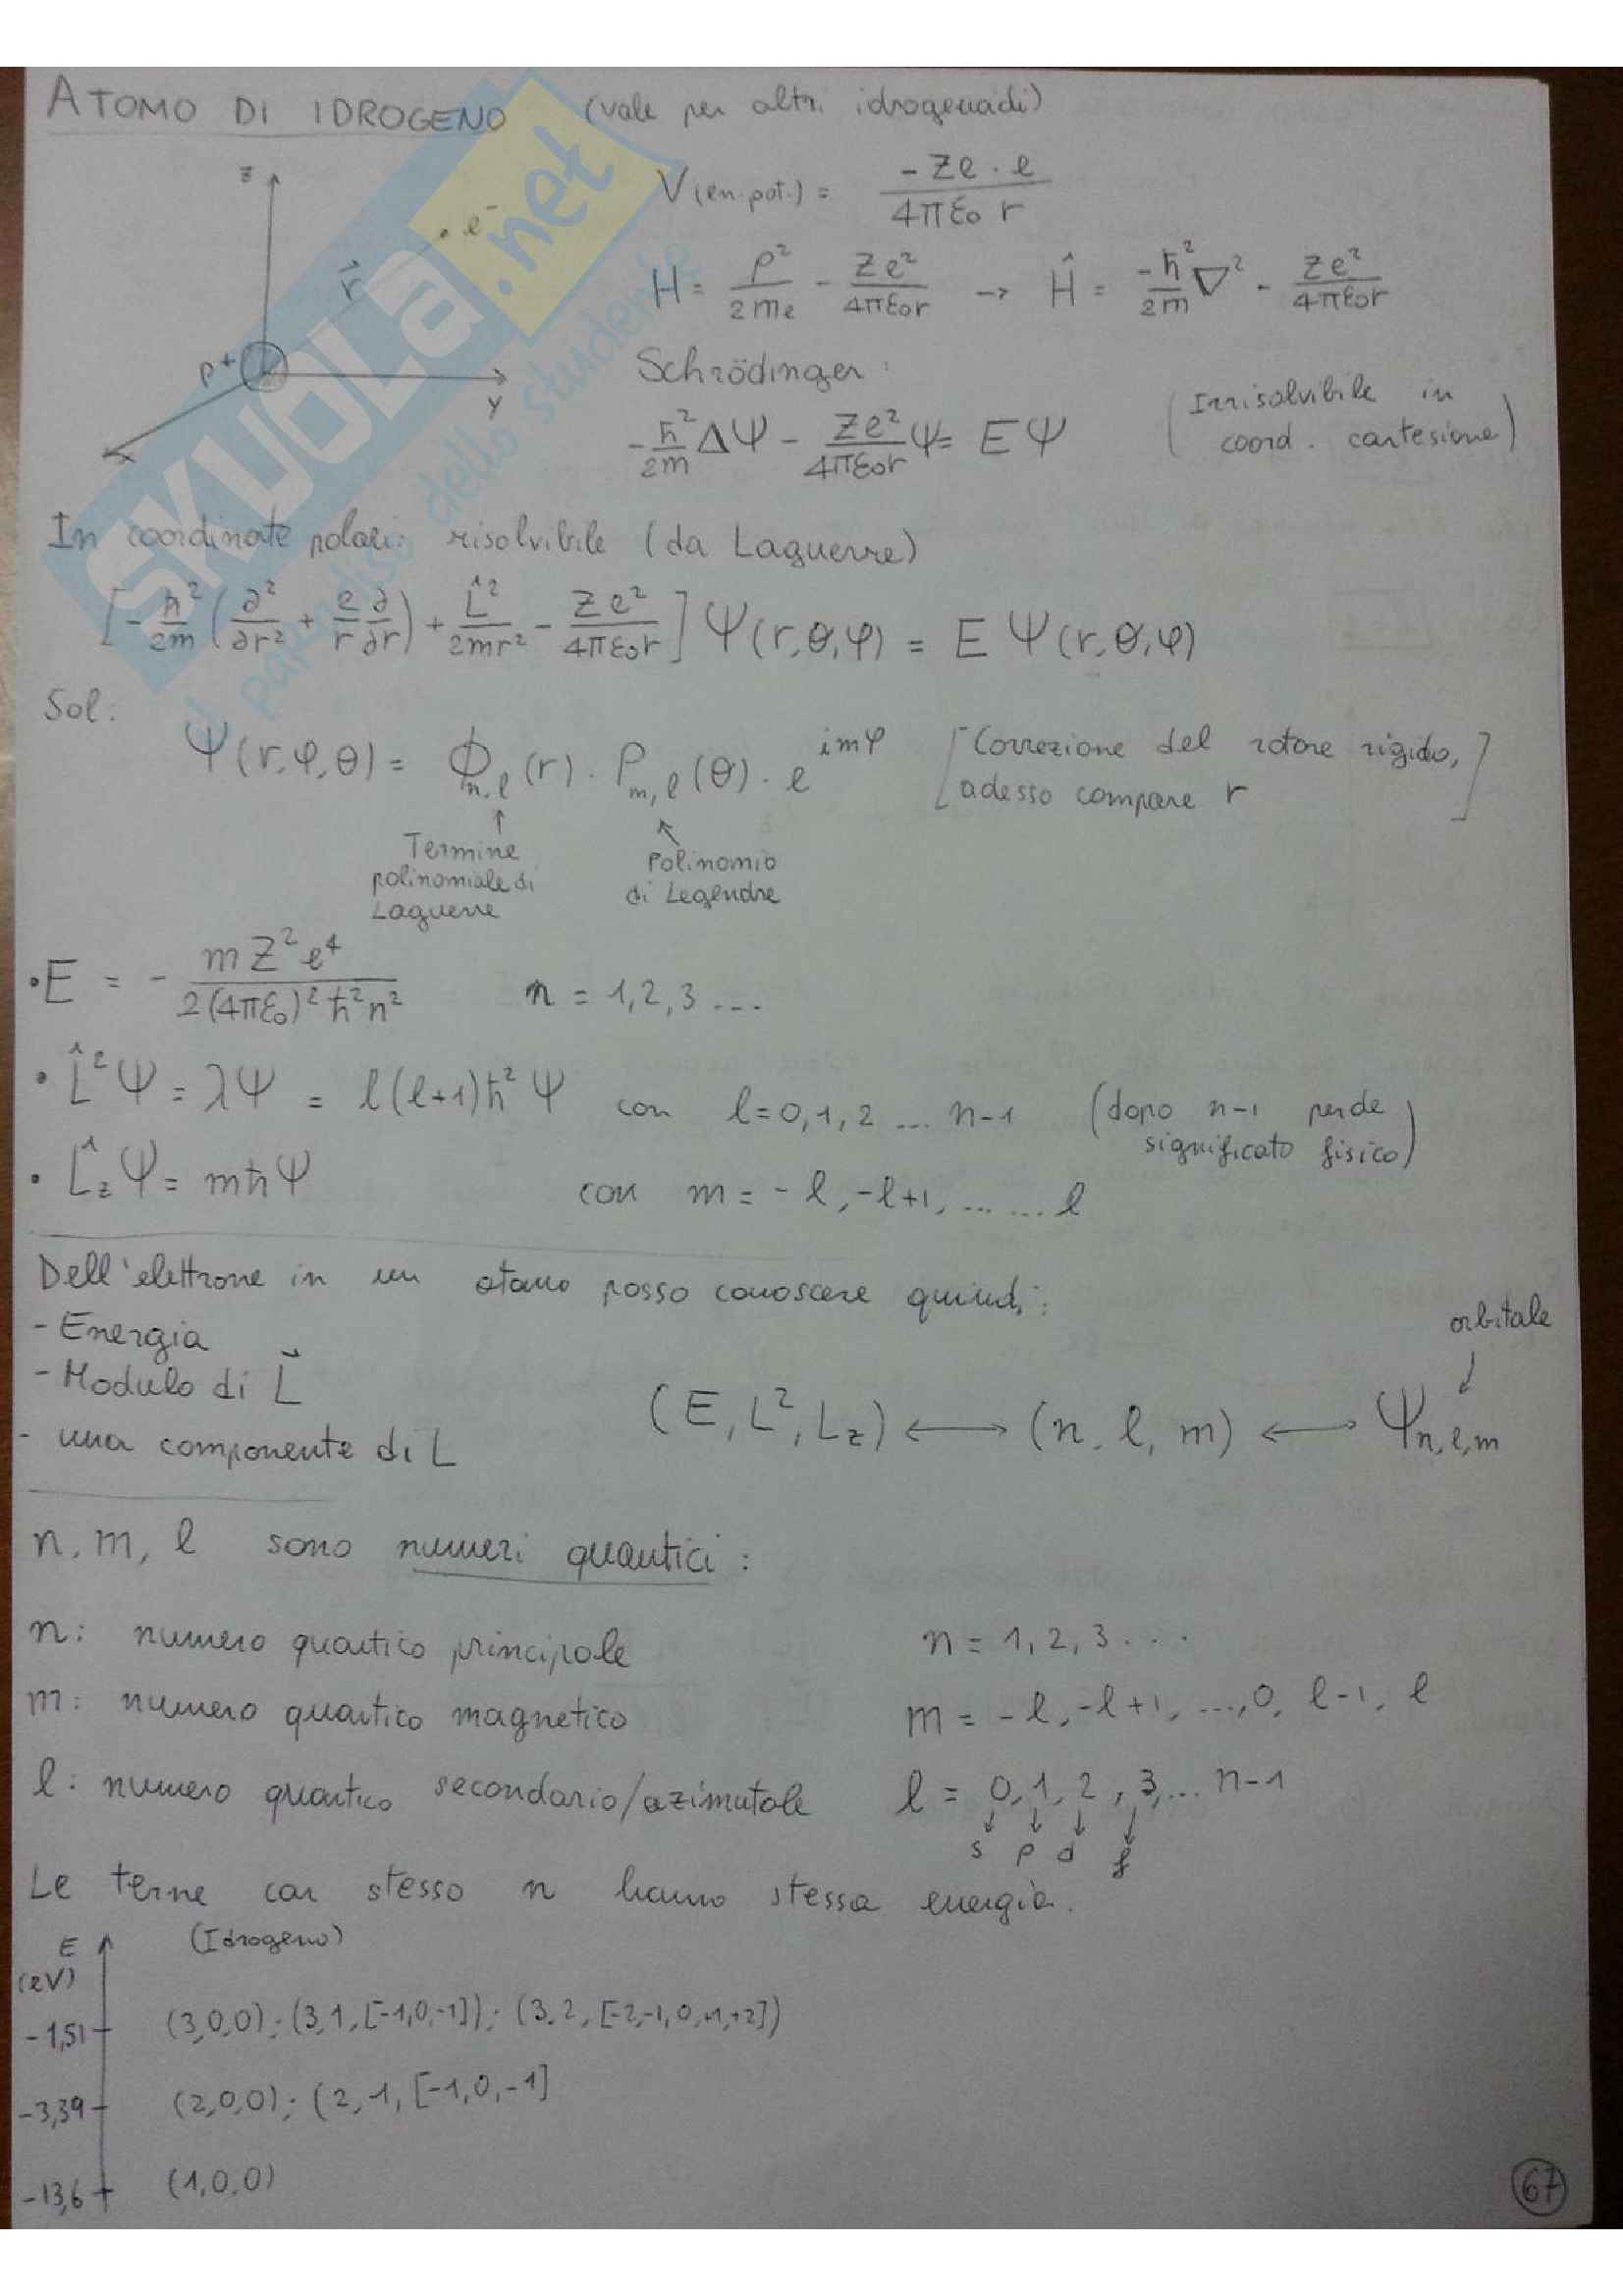 ATOMO DI IDROGENO (vale per altri idrogenoidi)
z
e⁻
r⃗
p⁺
y
x
V(en.pot.) = -Ze·e / 4πε₀ r
H = p²/2mₑ - Ze²/4πε₀r → Ĥ = -ħ²/2m ∇² - Ze²/4πε₀r
Schrödinger:
-ħ²/2m ΔΨ - Ze²/4πε₀r Ψ = EΨ (Irrisolvibile in
coord. cartesiane)
In coordinate polari: risolvibile (da Laguerre)
[-ħ²/2m (∂²/∂r² + 2/r ∂/∂r) + L̂²/2mr² - Ze²/4πε₀r] Ψ(r,θ,φ) = E Ψ(r,θ,φ)
Sol:
Ψ(r,φ,θ) = Φn,l(r) · Pm,l(θ) · e^imφ [Correzione del rotore rigido,
adesso compare r]
↑ Termine
polinomiale di
Laguerre
↖ Polinomio
di Legendre
• E = - mZ²e⁴ / 2(4πε₀)²ħ²n² n = 1,2,3...
• L̂²Ψ = λΨ = l(l+1)ħ²Ψ con l=0,1,2...n-1 (dopo n-1 perde
significato fisico)
• L̂zΨ = mħΨ con m = -l,-l+1,......l
Dell'elettrone in un atomo posso conoscere quindi:
- Energia
- Modulo di L⃗
- una componente di L
orbitale
↓
(E,L²,Lz) ⟷ (n,l,m) ⟷ Ψn,l,m
n,m,l sono numeri quantici:
n: numero quantico principale n = 1,2,3...
m: numero quantico magnetico m = -l,-l+1,...,0, l-1, l
l: numero quantico secondario/azimutale l = 0,1,2,3,...n-1
↓ ↓ ↓ ↓
s p d f
Le terne con stesso n hanno stessa energia.
E (Idrogeno)
(eV)
-1,51 (3,0,0); (3,1,[-1,0,-1]); (3,2,[-2,-1,0,+1,+2])
-3,39 (2,0,0); (2,1,[-1,0,-1]
-13,6 (1,0,0)
67
SKUOLA.net
il paradiso dello studente